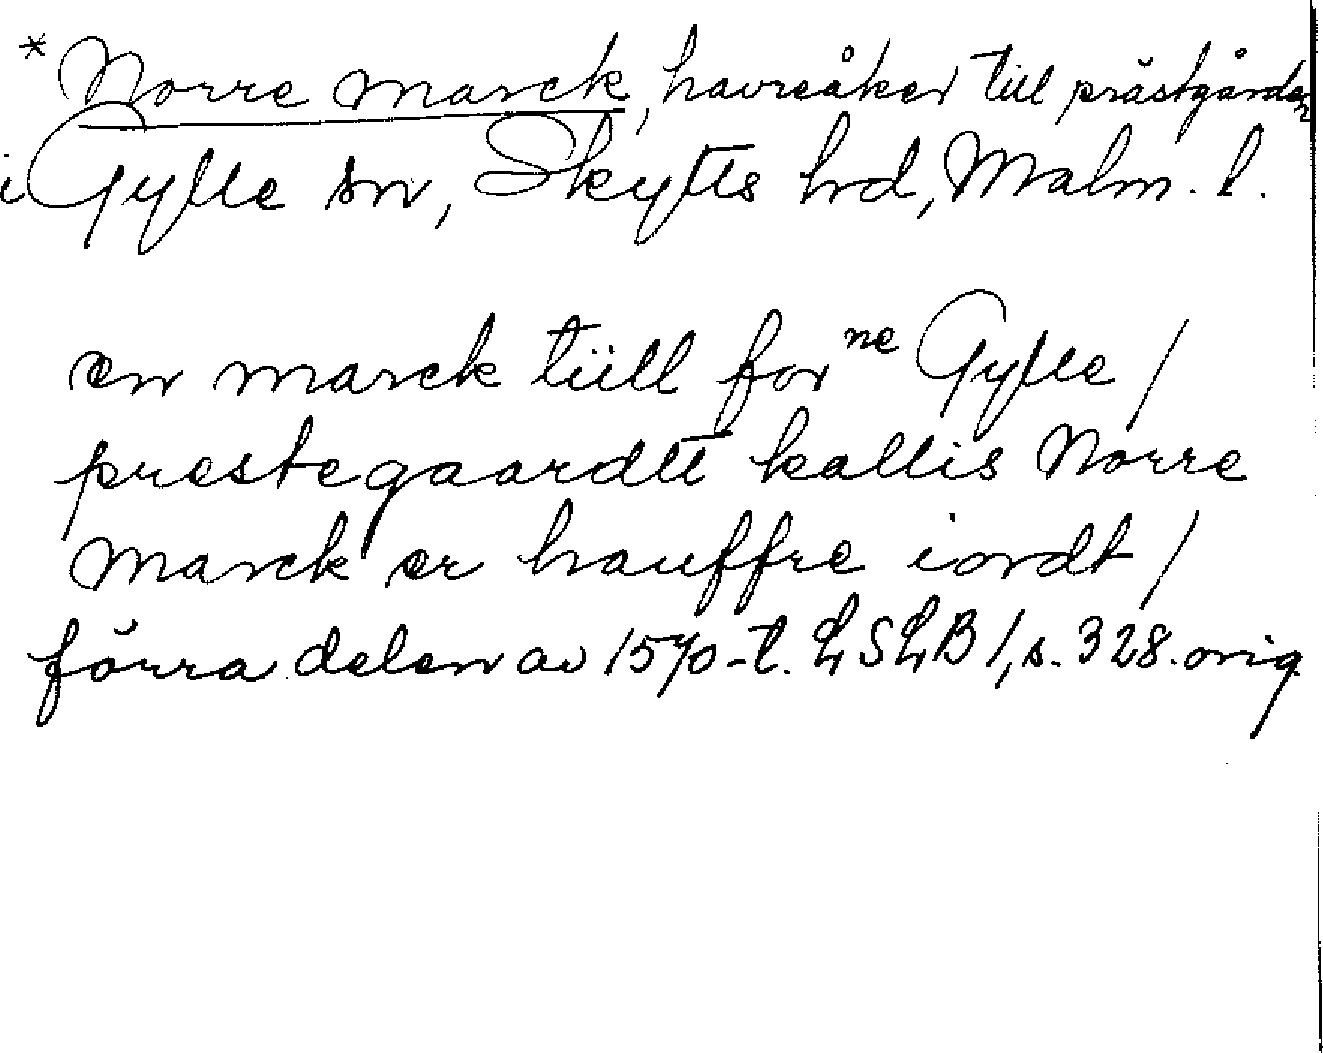 * Norre marck, havreåker till prästgården
i Gylle sn, Skytts hd, Malm. l.
en marck tüll for ne Gylle /
prestegaardtt kallis Norre
Marck er hauffre iordt /
förra delen av 1570-t. LSLB 1, s. 328. orig